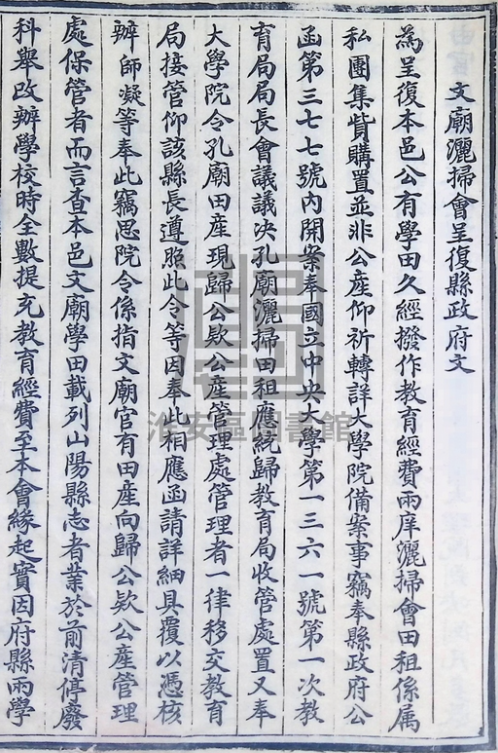 文廟灑掃會呈復縣政府文
為呈復本邑公有學田久經撥作教育經費兩庠灑掃會田租係属
私團集貲購置並非公產仰祈轉詳大學院備案事竊奉縣政府公
函第三七七號內開案奉國立中央大學第一三六一號第一次教
育局局長會議議決孔廟灑掃田租應統歸教育局收管處置又奉
大學院令孔廟田產現歸公欵公產管理處管理者一律移交教育
局接管仰該縣長遵照此令等因奉此相應函請詳細具覆以憑核
辦師凝等奉此竊思院令係指文廟官有田產向歸公欵公產管理
處保管者而言查本邑文廟學田載列山陽縣志者業於前清停廢
科舉改辦學校時全數提充教育經費至本會緣起實因府縣兩學
淮安區圖書館